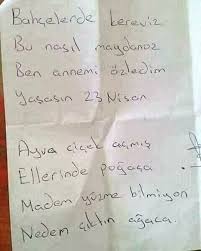 Bahçelerde kereviz
Bu nasıl maydanoz
Ben annemi özledim
Yaşasın 23 Nisan
Ayva çiçek açmış
Ellerinde poğaça
Madem yüzme bilmiyon
Neden çıktın ağaca.